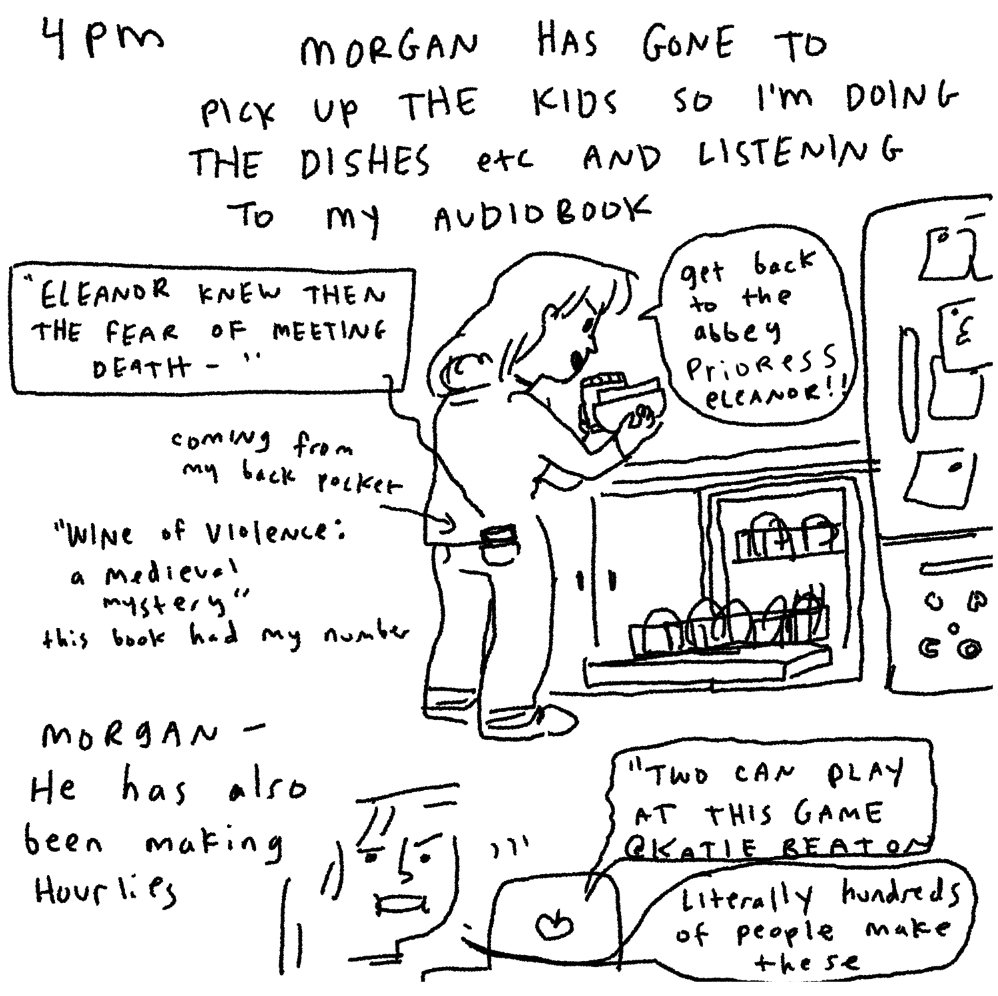 4 pm
MORGAN HAS GONE TO
PICK UP THE KIDS SO I'M DOING
THE DISHES etc AND LISTENING
TO MY AUDIOBOOK
"ELEANOR KNEW THEN
THE FEAR OF MEETING
DEATH - "
get back
to the
abbey
PRIORESS
ELEANOR!!
coming from
my back pocket
"WINE OF VIOLENCE:
a medieval
mystery"
this book had my number
MORGAN -
He has also
been making
Hourlies
"TWO CAN PLAY
AT THIS GAME
@KATIE BEATON
Literally hundreds
of people make
these